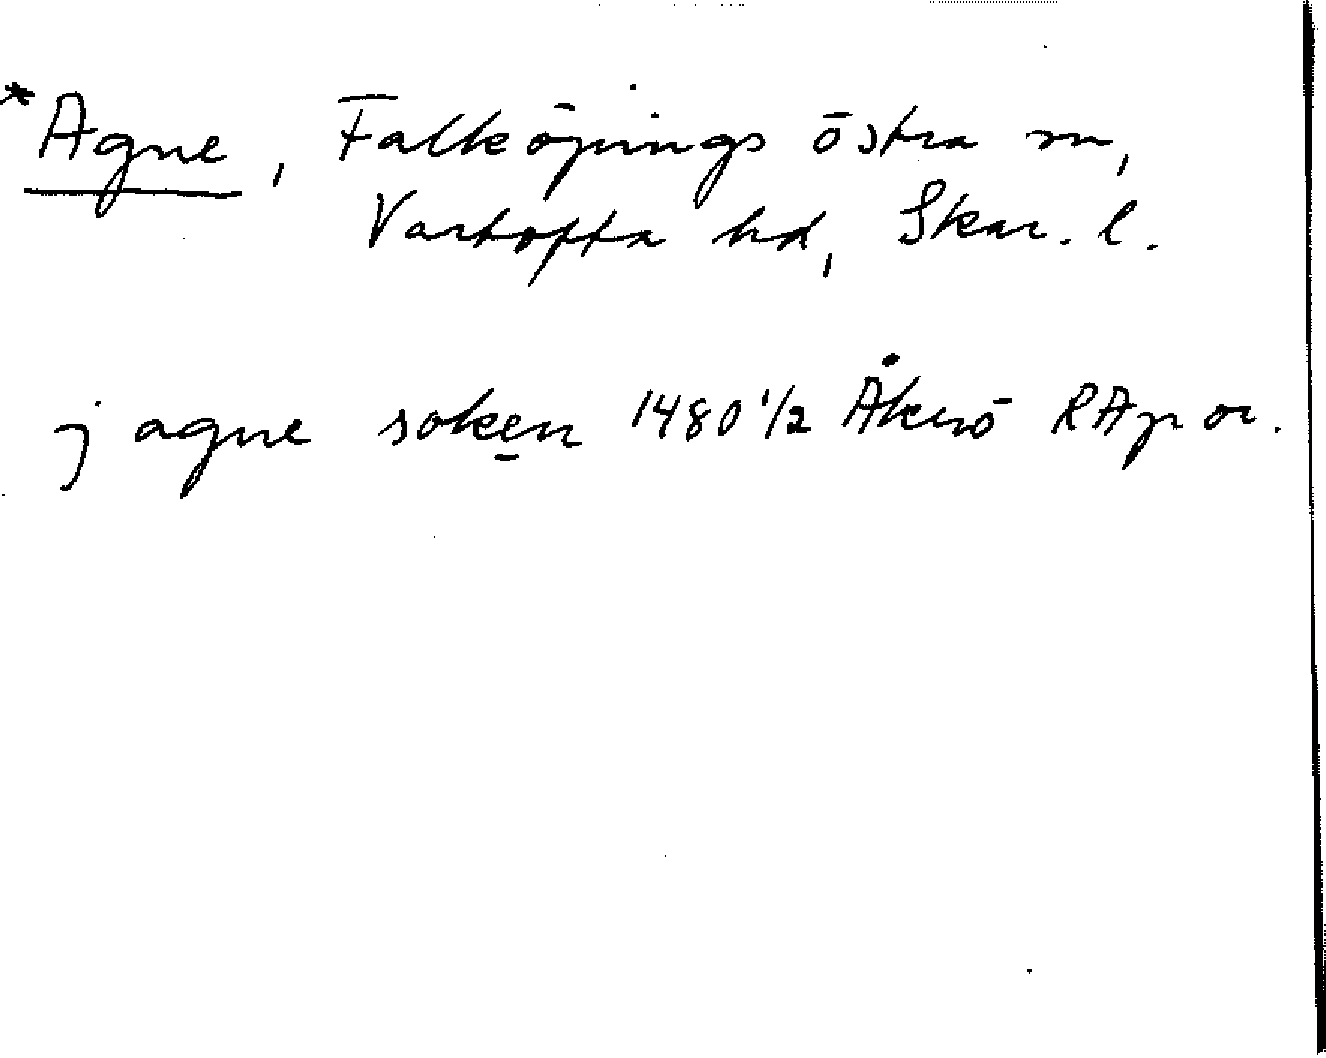 *Agne, Falköpings östra sn,
Vartofta hd, Skar. l.
j agne soken 1480 1/2 Åkerö RAp or.